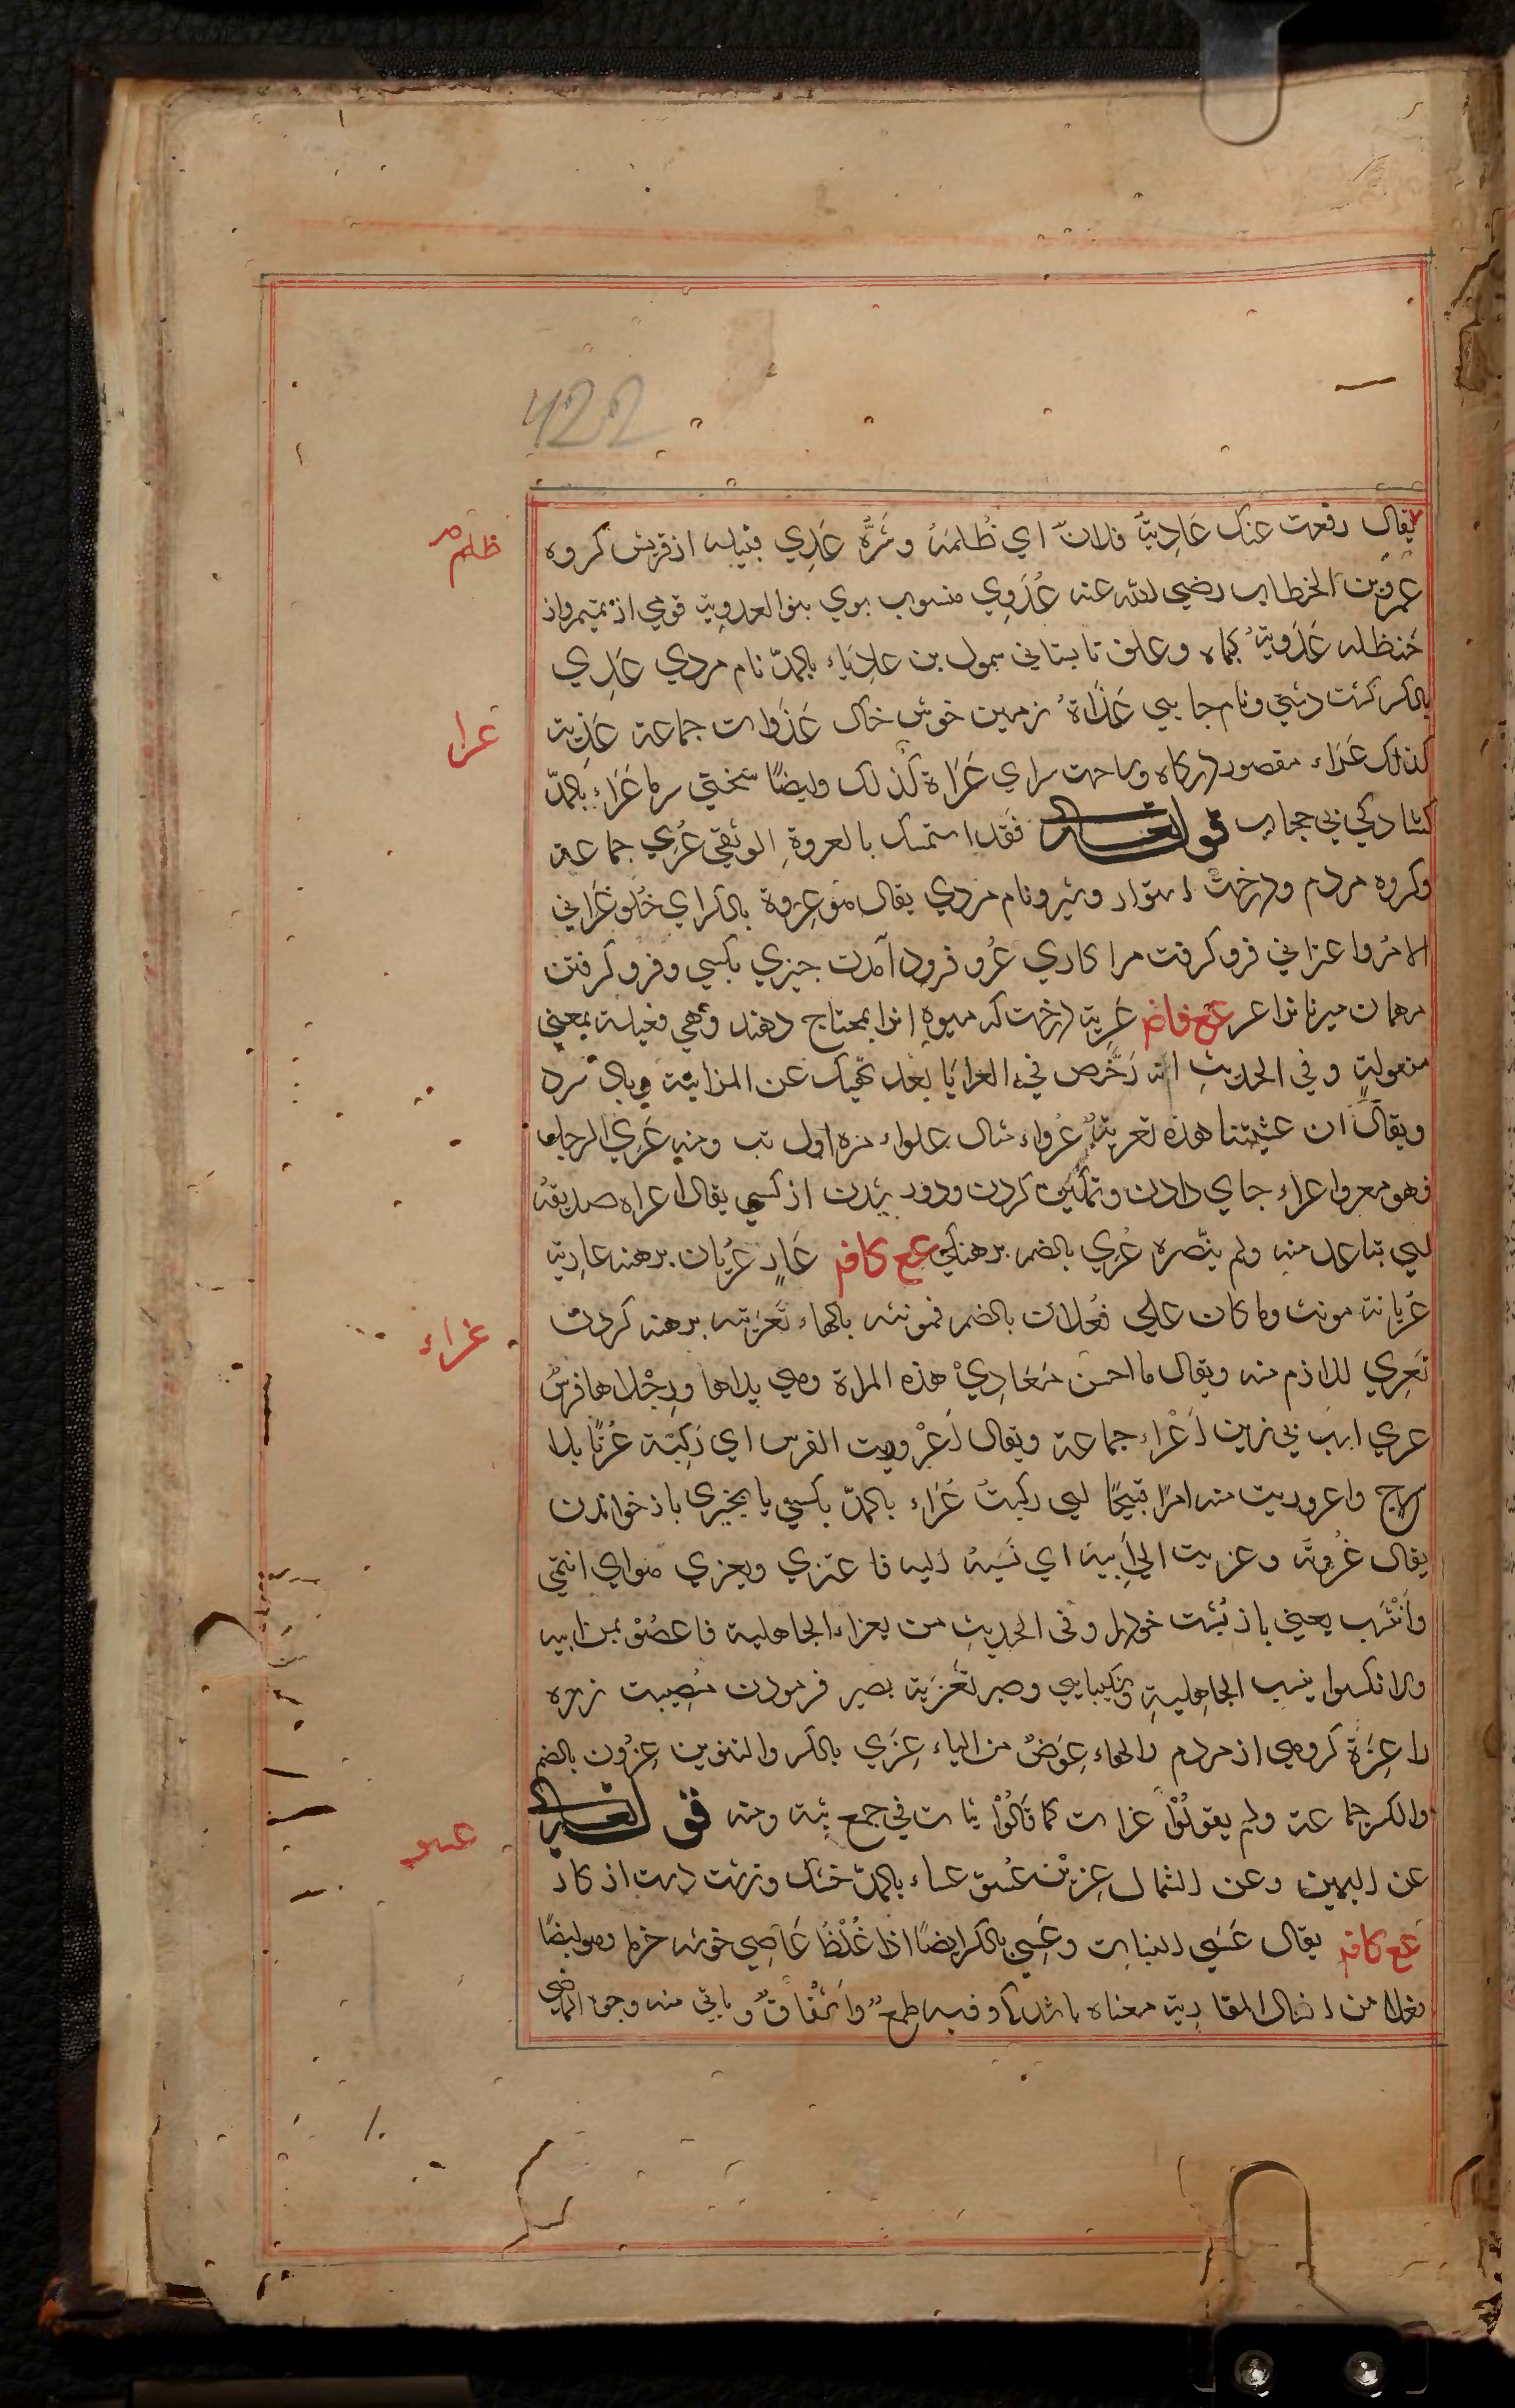 422
يقال دفعت عنك عَادِيَةَ فلان اي ظُلمَهُ وشَرَّهُ عَدِي قبيله از قريش كروه
ظلم
عمر بن الخطاب رضي الله عنه عُدَوِي منسوب بوي بنو العدوية قومي از تميم واز
حنظله عَدَوية كياه وعلف تابستاني سمول بن عادياء بالمدّ نام مردي عَدِي
بالكسر كشت دشتي ونام جايي عَذَاةُ زمين خوش خاك عَذَوات جماعة عَذِية
عرا
كذلك عَرَاء مقصور دركاه وساحت سراي عَرَاة كذلك وايضًا سختي سرما عَرَاء بالمدّ
كشادكي بي حجاب قوله تعالى فقد استمسك بالعروة الوثقى عُرِي جماعة
وكروه مردم ودرخت استوار وشير ونام مردي يقال هو عِروة بالكسر اي خُلو عَراني
الامرُ واعتراني فرو كرفت مرا كاري عُرو فرود آمدن چيزي بكسي وفرو كرفتن
مهمان ميزبانرا عر عع فاضم عَرِية درخت كه ميوه انرا بمحتاج دهند وهي فعيلة بمعني
مفعولة وفي الحديث انه رَخَّص في العرايا بعد نهيك عن المزابنة وباد سرد
ويقال ان عشيتنا هذه لعرية عُرواء مثال علواء لرزه اول تب ومنه عُرِي الرجل
فهو معروا عراء جاي دادن وتمكين كردن ودور شدن از كسي يقال اعراه صديقه
ايي تباعد منه ولم ينصره عُرِي بالضم برهنكي عع كافم عَارٍ عُريان برهنه عارية
عُريانة مونث وما كان علي فُعلان بالضم فمونثه بالهاء تَعرِيته برهنه كردن
عزاء
تَعرِي للازم منه ويقال ما احسن مَعَارِيْ هذه المراة وهي يداها ورِجْلاها فرسٌ
عري اسب بي زين اَعْراء جماعة ويقال اَعْروريت الفرس اي رَكِبْتَه عُريًا بلا
سرج واعروريت منه امرًا قبيحًا ايي ركبتُ عَزَاء بالمدّ بكسي يا بچيزي باز خواندن
يقال عَزوته وعزيت الي اَبيه اي نَسَبْتُه اليه فاعتزي ويعزي هو اي انتمي
وانتَسَب يعني باز بست خودرا وفي الحديث من يعزاء الجاهلية فاعضُّوه بهن ابيه
ولا تكنوا بنسب الجاهلية وشكيبايي وصبر تعزية بصبر فرمودن مصيبت زده
را عِزَة كروهي از مردم والهاء عِوَضٌ من الياء عِزَي بالكسر والتنوين عِزُون بالضم
والكسر جماعة ولم يقولوا عزات كما قالوا ثبات في جمع ثبة ومنه قوله تعالى
عسو
عن اليمين وعن الشمال عِزِيْن عُسو عساء بالمدّ خشك ودرشت دست از كار
عع كافم يقال عَسَي النبات وعَسِي بالكسر ايضًا اذا غَلُظَ عَاسِي خوشه خرما وهو ايضًا
فعل من افعال المقاربة معناه وفيه طمعٌ واِشْفاقٌ وياتي منه وجوه الماضي